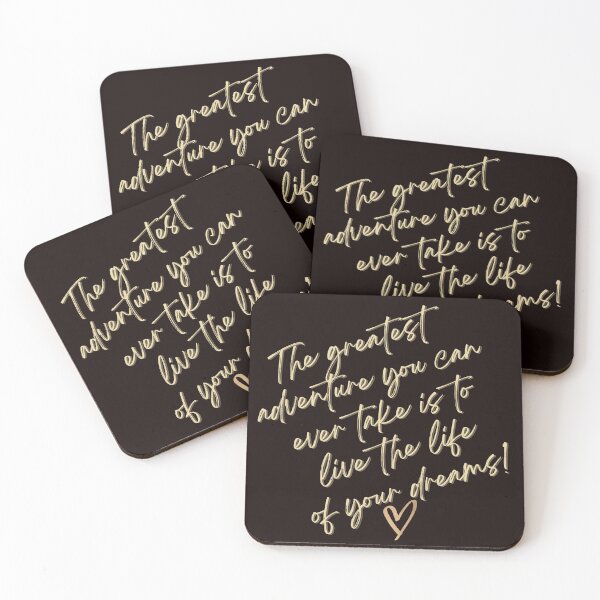 The greatest
adventure you can
take is to
life
The greatest
adventure you can
ever take is to
live the life
dreams!
The greatest
adventure you can
ever take is to
live the life
of your
The greatest
adventure you can
ever take is to
live the life
of your dreams!